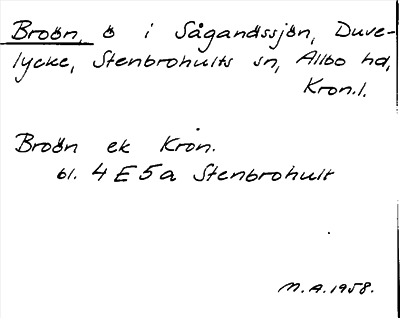 Broön, ö i Såganässjön, Duve-
lycke, Stenbrohults sn, Allbo hd,
Kron.l.
Broön ek Kron.
bl. 4 E 5 a Stenbrohult
M.A. 1958.